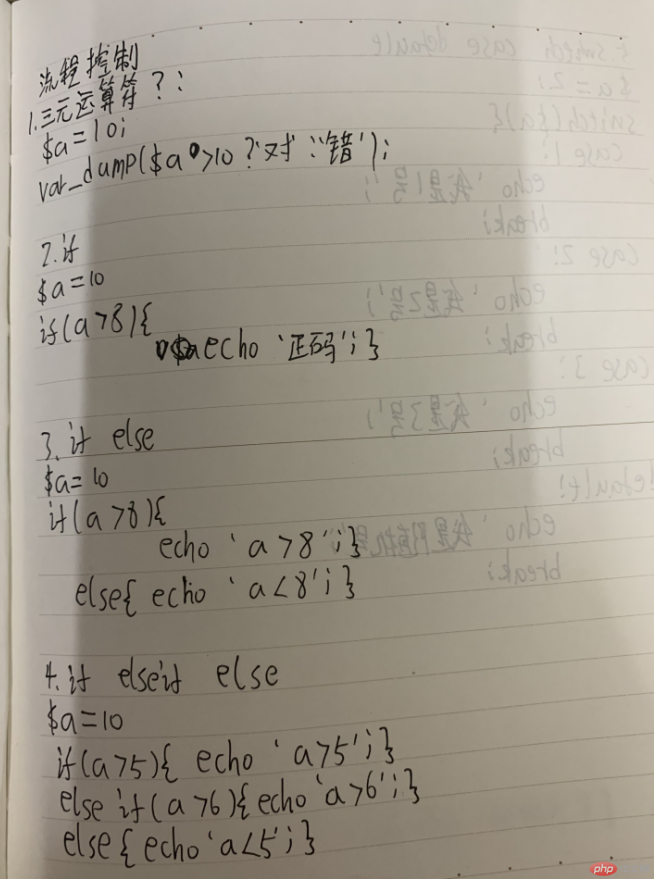 流程控制
1.三元运算符 ?:
$a=10;
var_dump($a>10?'对':'错');
2.if
$a=10
if(a>8){
echo '正码';}
3.if else
$a=10
if(a>8){
echo 'a>8';}
else{ echo 'a<8';}
4.if elseif else
$a=10
if(a>5){ echo 'a>5';}
else if(a>6){echo 'a>6';}
else{echo 'a<5';}
php